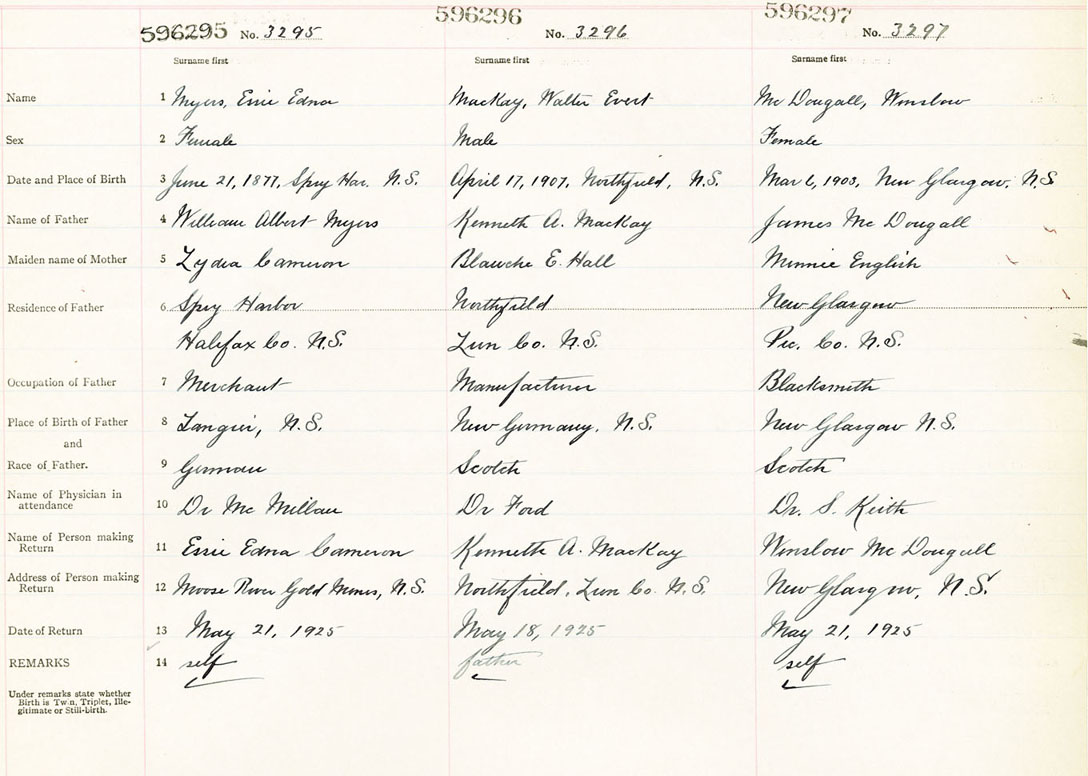 596295 No. 3295 596296 No. 3296 596297 No. 3297
Surname first Surname first Surname first
Name 1 Myers, Essie Edna MacKay, Walter Evert Mc Dougall, Winslow
Sex 2 Female Male Female
Date and Place of Birth 3 June 21, 1877, Spry Har. N.S. April 17, 1907, Northfield, N.S. Mar 6, 1903, New Glasgow, N.S
Name of Father 4 William Albert Myers Kenneth A. MacKay James Mc Dougall
Maiden name of Mother 5 Lydia Cameron Blanche E. Hall Minnie English
Residence of Father 6 Spry Harbor Northfield New Glasgow
Halifax Co. N.S. Lun Co. N.S. Pic. Co. N.S.
Occupation of Father 7 Merchant Manufacturer Blacksmith
Place of Birth of Father 8 Tangier, N.S. New Germany, N.S. New Glasgow N.S.
and
Race of Father. 9 German Scotch Scotch
Name of Physician in
attendance 10 Dr Mc Millan Dr Ford Dr. S. Keith
Name of Person making
Return 11 Essie Edna Cameron Kenneth A. MacKay Winslow Mc Dougall
Address of Person making
Return 12 Moose River Gold Mines, N.S. Northfield, Lun Co. N.S. New Glasgow, N.S.
Date of Return 13 May 21, 1925 May 18, 1925 May 21, 1925
REMARKS 14 self father self
Under remarks state whether
Birth is Twin, Triplet, Ille-
gitimate or Still-birth.